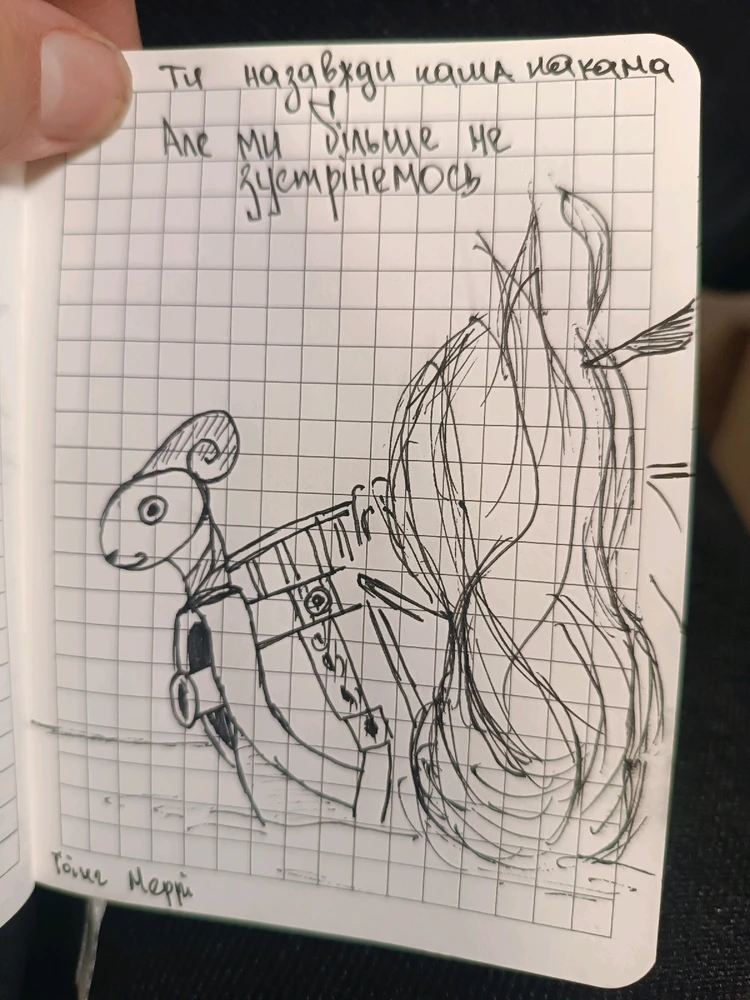 Ти назавжди наша накама
Але ми більше не
зустрінемось
Гоїнг Меррі